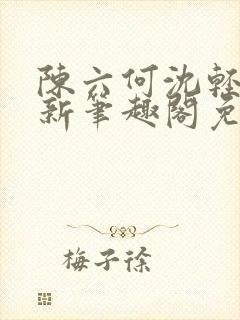 陳六何沈輕
新筆趣閣免
梅子徐